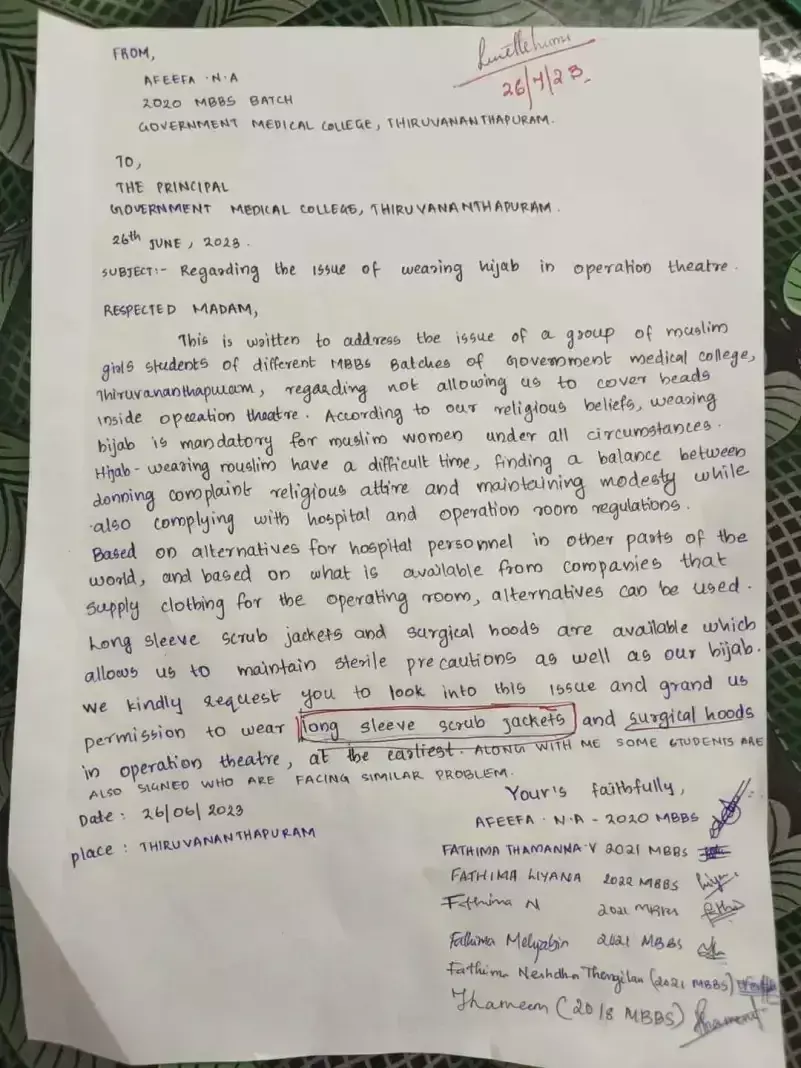 FROM,
26/7/23
AFEEFA . N . A
2020 MBBS BATCH
GOVERNMENT MEDICAL COLLEGE, THIRUVANANTHAPURAM.
TO,
THE PRINCIPAL
GOVERNMENT MEDICAL COLLEGE, THIRUVANANTHAPURAM.
26th JUNE, 2023.
SUBJECT:- Regarding the issue of wearing hijab in operation theatre.
RESPECTED MADAM,
This is written to address the issue of a group of muslim
girls students of different MBBS Batches of Government medical college,
Thiruvananthapuram, regarding not allowing us to cover heads
inside operation theatre. According to our religious beliefs, wearing
hijab is mandatory for muslim women under all circumstances.
Hijab - wearing muslim have a difficult time, finding a balance between
donning complaint religious attire and maintaining modesty while
also complying with hospital and operation room regulations.
Based on alternatives for hospital personnel in other parts of the
world, and based on what is available from companies that
supply clothing for the operating room, alternatives can be used.
Long sleeve scrub jackets and surgical hoods are available which
allows us to maintain sterile precautions as well as our hijab.
We kindly request you to look into this issue and grand us
permission to wear long sleeve scrub jackets and surgical hoods
in operation theatre, at the earliest. ALONG WITH ME SOME STUDENTS ARE
ALSO SIGNED WHO ARE FACING SIMILAR PROBLEM.
Date: 26/06/2023
place: THIRUVANANTHAPURAM
Your's faithfully,
AFEEFA . N . A - 2020 MBBS
FATHIMA THAMANNA . V 2021 MBBS
FATHIMA LIYANA 2022 MBBS
Fathima N 2021 MBBS
Fathima 2021 MBBS
Fathima (2021 MBBS)
(2018 MBBS)